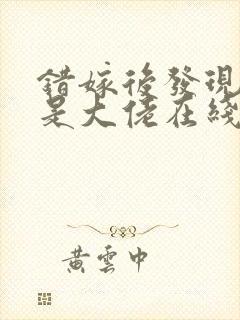 錯嫁後發現
是大佬在綫
黃雲中